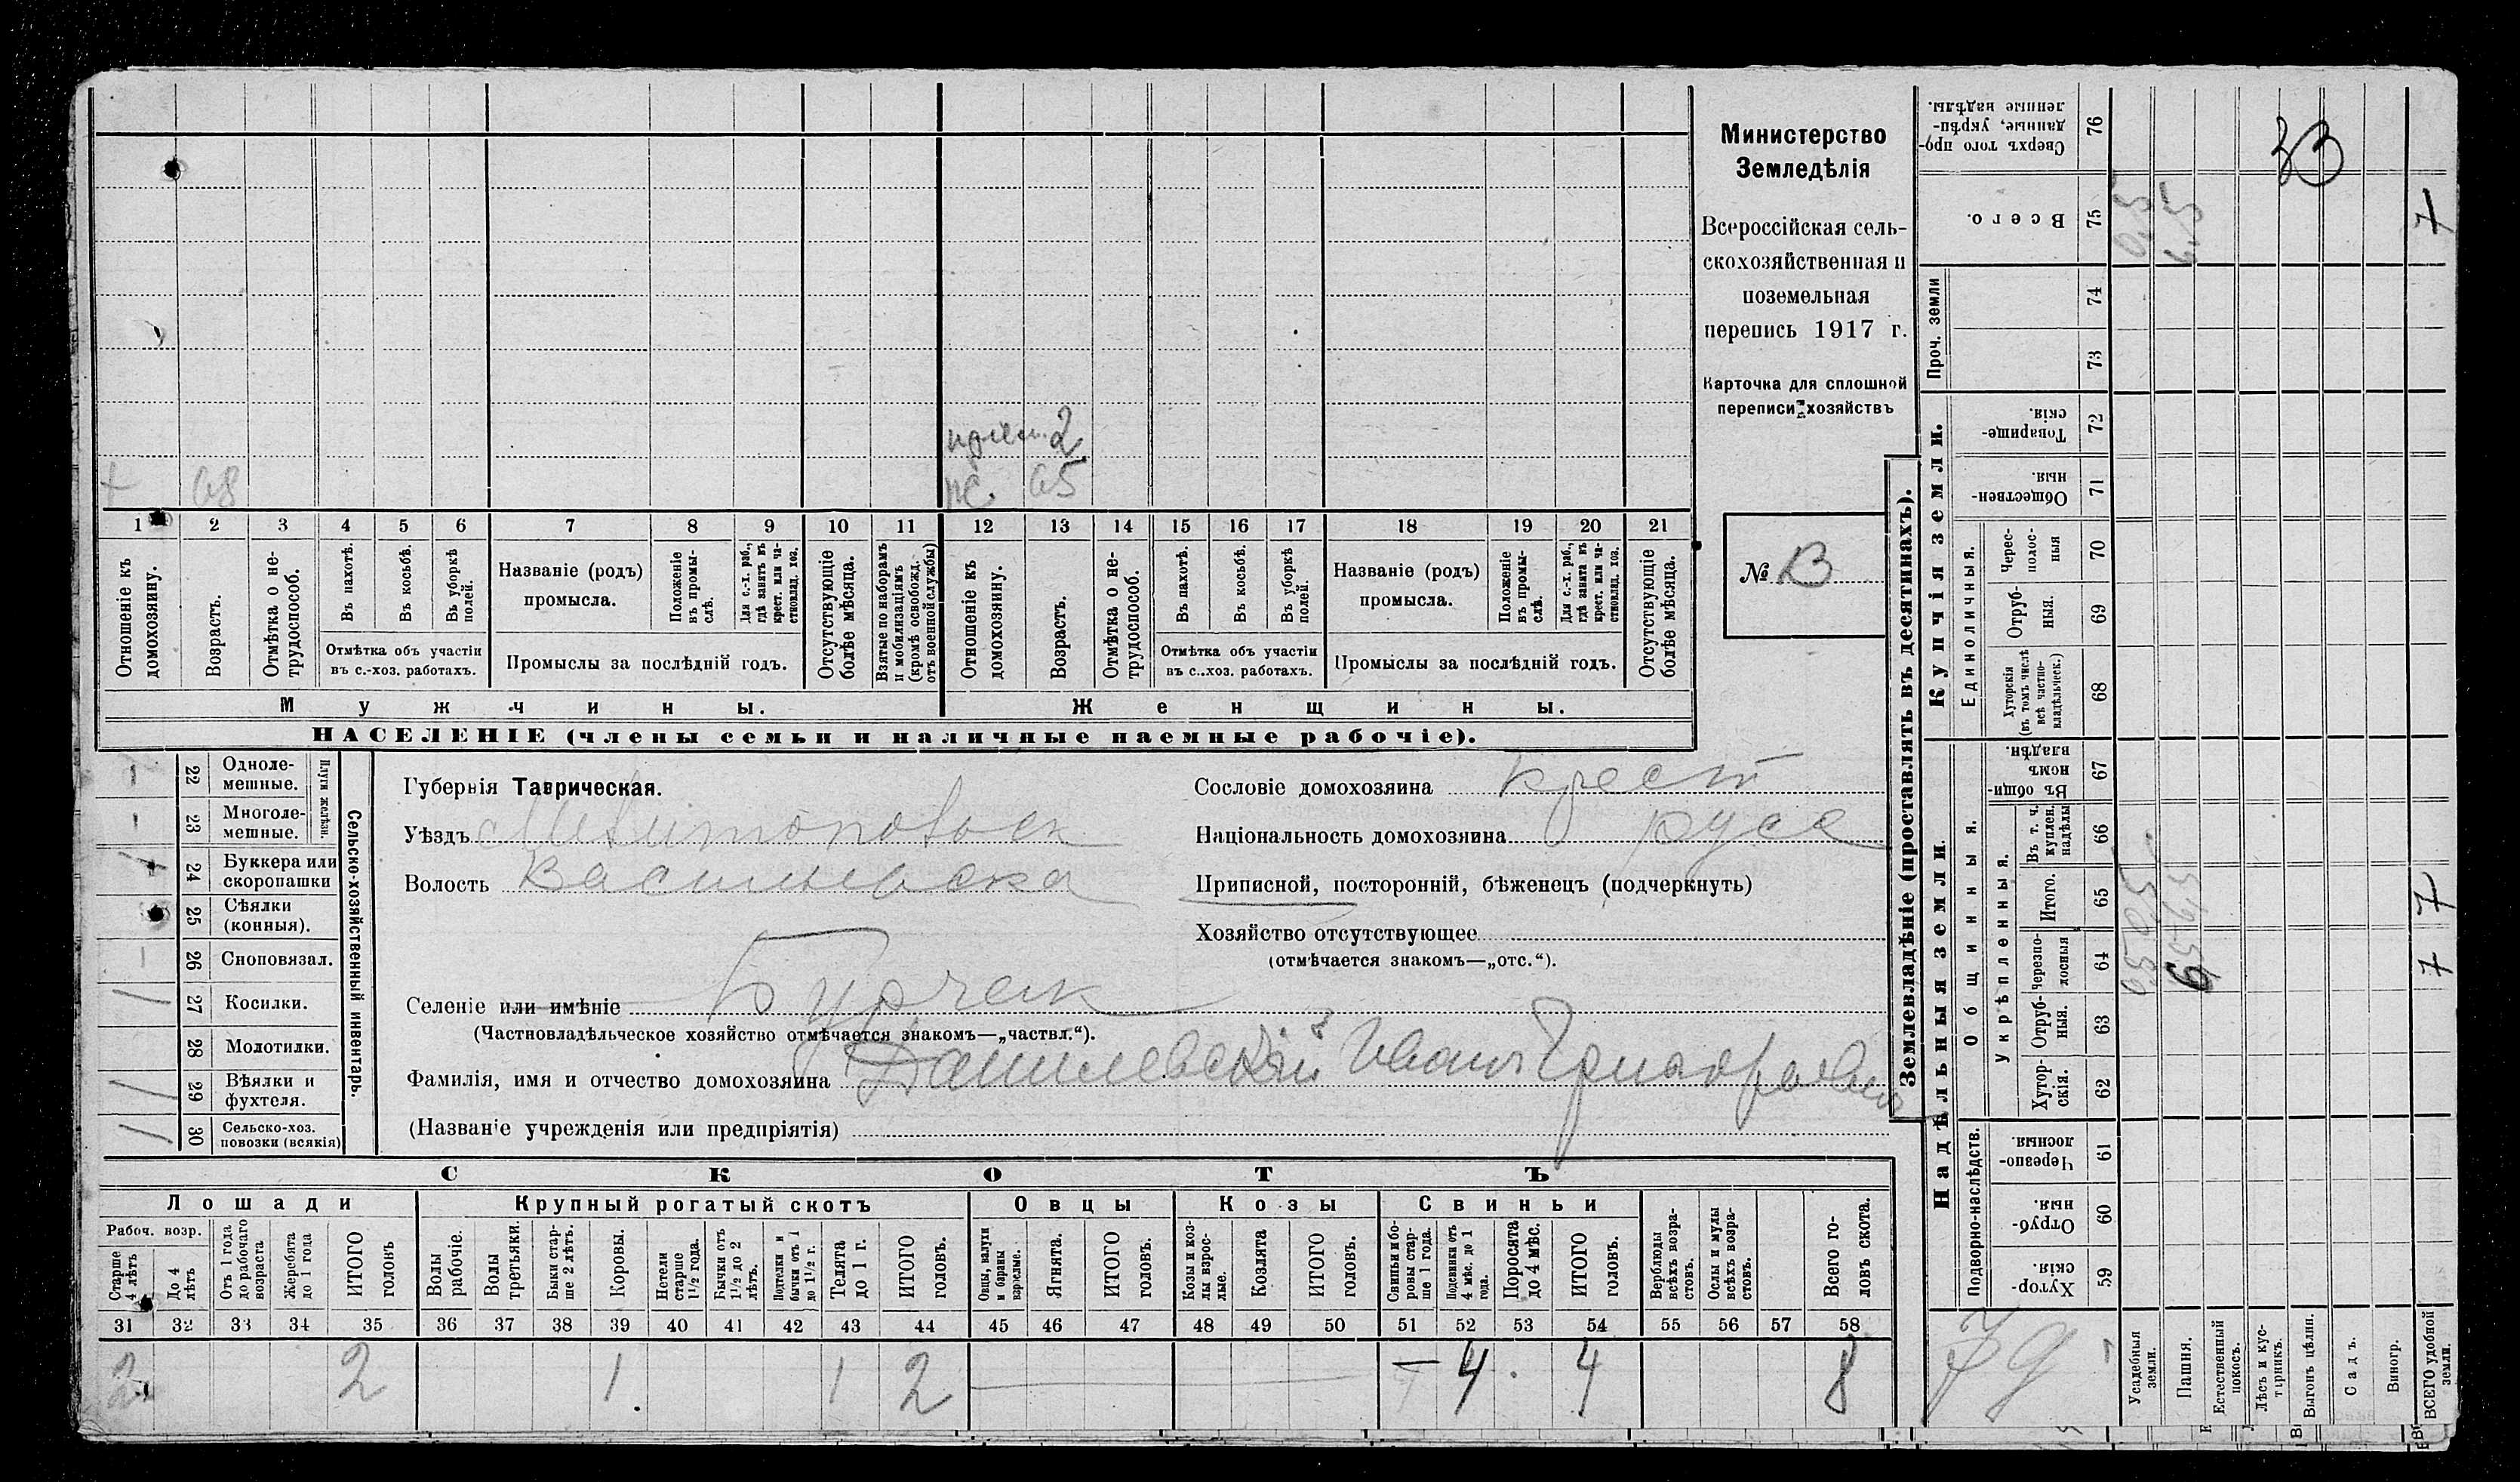 Министерство
Земледѣлія
Всероссійская сель-
скохозяйственная и
поземельная
перепись 1917 г.
Карточка для сплошной
переписи хозяйствъ
№ 13
прием. 2
+ 68 же. 65
1 2 3 4 5 6 7 8 9 10 11 12 13 14 15 16 17 18 19 20 21
Отношеніе къ домохозяину.
Возрастъ.
Отмѣтка о не-трудоспособ.
Въ пахотѣ.
Въ косьбѣ.
Въ уборкѣ полей.
Отмѣтка объ участіи
въ с.-хоз. работахъ.
Названіе (родъ)
промысла.
Положеніе въ промы-слѣ.
Для с.-х. раб., гдѣ занятъ въ крест. или ча-стновлад. хоз.
Промыслы за послѣдній годъ.
Отсутствующіе болѣе мѣсяца.
Взятые по наборамъ и мобилизаціямъ (кромѣ освобожд. отъ военной службы)
Отношеніе къ домохозяину.
Возрастъ.
Отмѣтка о не-трудоспособ.
Въ пахотѣ.
Въ косьбѣ.
Въ уборкѣ полей.
Отмѣтка объ участіи
въ с..хоз. работахъ.
Названіе (родъ)
промысла.
Положеніе въ промы-слѣ.
Для с.-х. раб., гдѣ занята въ крест. или ча-стновлад. хоз.
Промыслы за послѣдній годъ.
Отсутствующіе болѣе мѣсяца.
Мужчины. Женщины.
НАСЕЛЕНІЕ (члены семьи и наличные наемные рабочіе).
Сельско-хозяйственный инвентарь.
Плуги желѣзн.
- 22 Одноле-мешные.
- 23 Многоле-мешные.
24 Буккера или скоропашки
25 Сѣялки (конныя).
- 26 Сноповязал.
/ 27 Косилки.
28 Молотилки.
/ 29 Вѣялки и фухтеля.
/ 30 Сельско-хоз. повозки (всякія)
Губернія Таврическая.
Уѣздъ Мелитопольск
Волость Васильевска
Селеніе или имѣніе Бурчак
(Частновладѣльческое хозяйство отмѣчается знакомъ—„частвл.“).
Фамилія, имя и отчество домохозяина Данилевскій Иванъ Григорьевич
(Названіе учрежденія или предпріятія)
Сословіе домохозяина крест
Національность домохозяина русс
Приписной, посторонній, бѣженецъ (подчеркнуть)
Хозяйство отсутствующее
(отмѣчается знакомъ—„отс.“).
СКОТЪ
Лошади Крупный рогатый скотъ Овцы Козы Свиньи
Рабоч. возр.
Старше 4 лѣтъ
До 4 лѣтъ
Отъ 1 года до рабочаго возраста
Жеребята до 1 года
ИТОГО головъ
Волы рабочіе.
Волы третьяки.
Быки стар-ше 2 лѣтъ.
Коровы.
Нетели старше 1½ года.
Бычки отъ 1½ до 2 лѣтъ.
Подтелки и бычки отъ 1 до 1½ г.
Телята до 1 г.
ИТОГО головъ.
Овцы, валухи и бараны взрослые.
Ягнята.
ИТОГО головъ.
Козы и коз-лы взрос-лые.
Козлята
ИТОГО головъ.
Свиньи и бо-ровы стар-ше 1 года.
Подсвинки отъ 4 мѣс. до 1 года.
Поросята до 4 мѣс.
ИТОГО головъ.
Верблюды всѣхъ возра-стовъ.
Ослы и мулы всѣхъ возра-стовъ.
Всего го-ловъ скота.
31 32 33 34 35 36 37 38 39 40 41 42 43 44 45 46 47 48 49 50 51 52 53 54 55 56 57 58
2 2 1 1 2 4 4 8
Землевладѣніе (проставлять въ десятинахъ).
Сверхъ того про-данные, укрѣп-ленные надѣлы. 76
33
Всего. 75 0,5 6,5 7
Проч. земли
74
73
Купчія земли.
Товарище-скія. 72
Обществен-ныя 71
Единоличныя.
Черес-полос-ныя 70
Отруб-ныя. 69
Хуторскія (въ томъ числѣ всѣ частно-владѣльческ.) 68
Надѣльныя земли.
Общинныя.
Въ общи-номъ владѣн. 67
Укрѣпленныя.
Въ т. ч. куплен. надѣлы 66
Итого. 65 0,5 6,5 7
Черезпо-лосныя 64 0,5 7
Отруб-ныя. 63
Хутор-скія. 62
Подворно-наслѣдств.
Черезпо-лосныя. 61
Отруб-ныя. 60
Хутор-скія. 59
79
Усадебныя земли.
Пашня.
Естественный покосъ.
Лѣсъ и кус-тарникъ.
Выгонъ цѣлин.
Садъ.
Виногр.
ВСЕГО удобной земли.